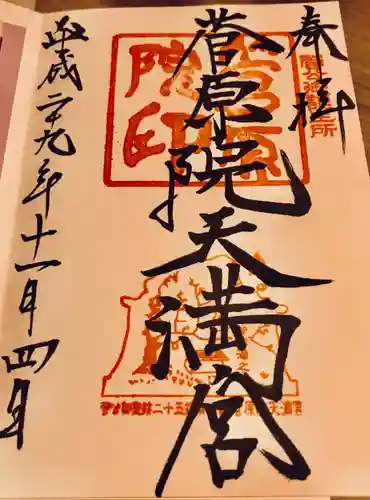 奉拝
菅原院天満宮
平成二十九年十一月四日
菅原院印